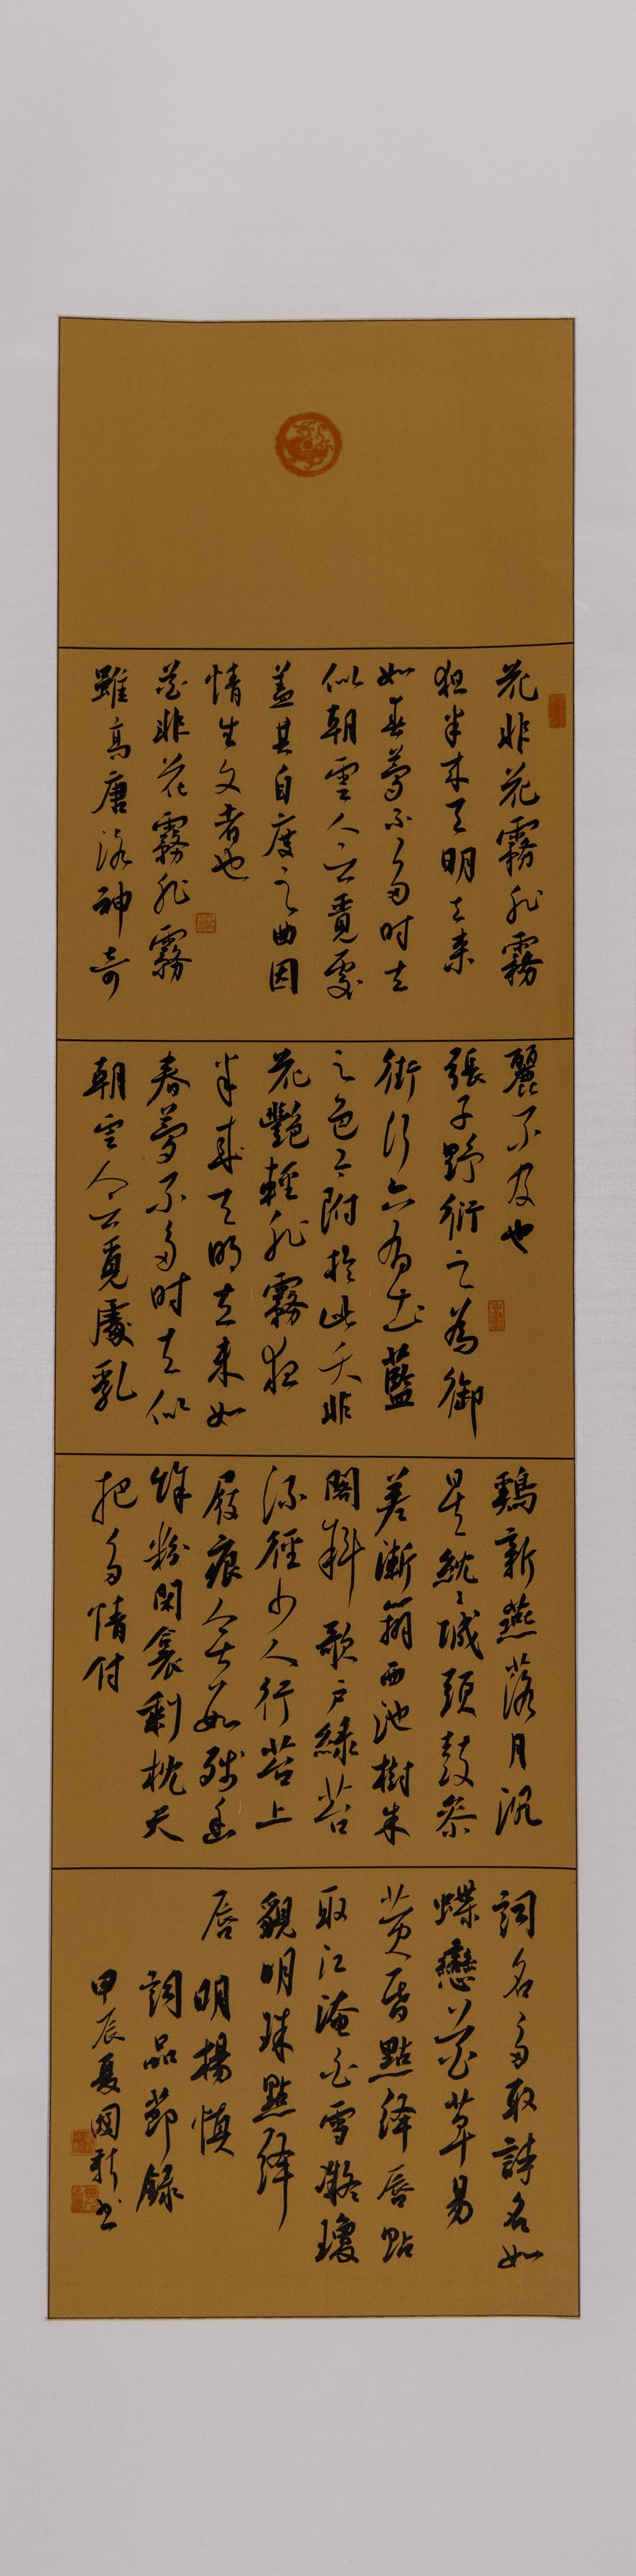 花非花霧非霧
狙半来天明去来
如春夢不多时去
似朝雲人亡覓處
蓋其自度之曲因
情生文者也
花非花霧非霧
雖高唐洛神奇
麗不及也
張子野衍之為御
街行亦有出藍
之色今附於此夭非
花艷輕非霧夜
半来天明去来如
春夢不多时去似
朝雲人亡覓處乳
鷄新燕落月沉
星紞紞城頭鼓參
差漸辨西池樹朱
閣斜歌户緑苔
深徑少人行苔上
屐痕無數殘香
餘粉閑衾剩枕天
把多情付
詞名多取詩名如
蝶戀花草易
黄昏點絳唇點
取江淹白雪凝瓊
貌明珠點絳
唇
明楊慎
詞品節錄
甲辰夏國新书